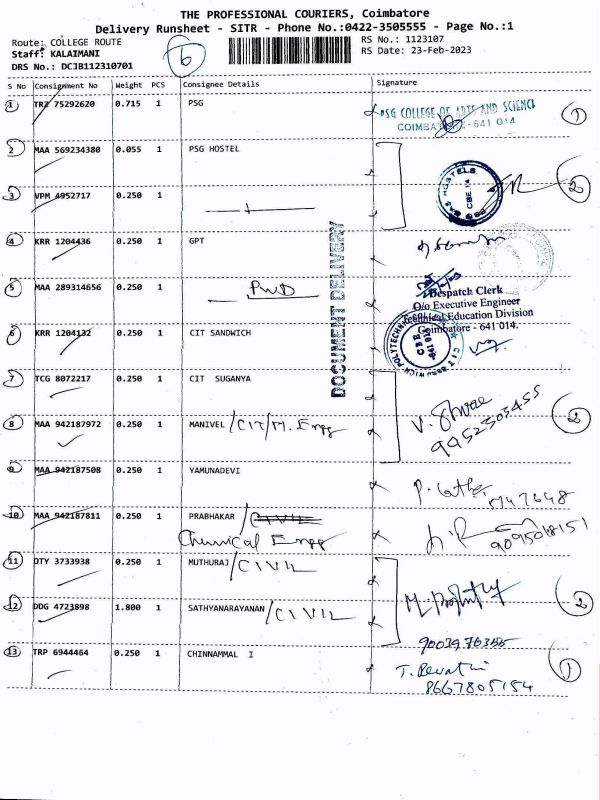 THE PROFESSIONAL COURIERS, Coimbatore
Delivery Runsheet - SITR - Phone No.:0422-3505555 - Page No.:1
Route: COLLEGE ROUTE
RS No.: 1123107
Staff: KALAIMANI
RS Date: 23-Feb-2023
DRS No.: DCJB112310701
6
S No Consignment No Weight PCS Consignee Details Signature
1 TRZ 75292620 0.715 1 PSG
PSG COLLEGE OF ARTS AND SCIENCE
COIMBATORE - 641 014
1
2 MAA 569234380 0.055 1 PSG HOSTEL
2
3 VPM 4952717 0.250 1
4 KRR 1204436 0.250 1 GPT
5 MAA 289314656 0.250 1 PWD
Despatch Clerk
O/o Executive Engineer
Technical Education Division
Coimbatore - 641 014.
DOCUMENT DELIVERY
6 KRR 1204132 0.250 1 CIT SANDWICH
7 TCG 8072217 0.250 1 CIT SUGANYA
8 MAA 942187972 0.250 1 MANIVEL /CIT/M. Engg
9952503455
2
9 MAA 942187508 0.250 1 YAMUNADEVI
10 MAA 942187811 0.250 1 PRABHAKAR /CIVIL
Chemical Engg
9095018151
11 DTY 3733938 0.250 1 MUTHURAJ /CIVIL
12 DDG 4723898 1.800 1 SATHYANARAYANAN /CIVIL
2
13 TRP 6944464 0.250 1 CHINNAMMAL I
T. Revathi
8667805154
1